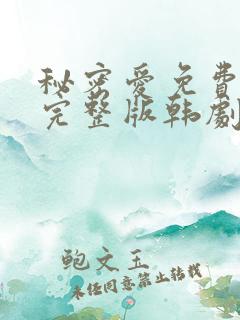 秘密爱免费
完整版韩剧
鲍文玉
未经同意禁止转载